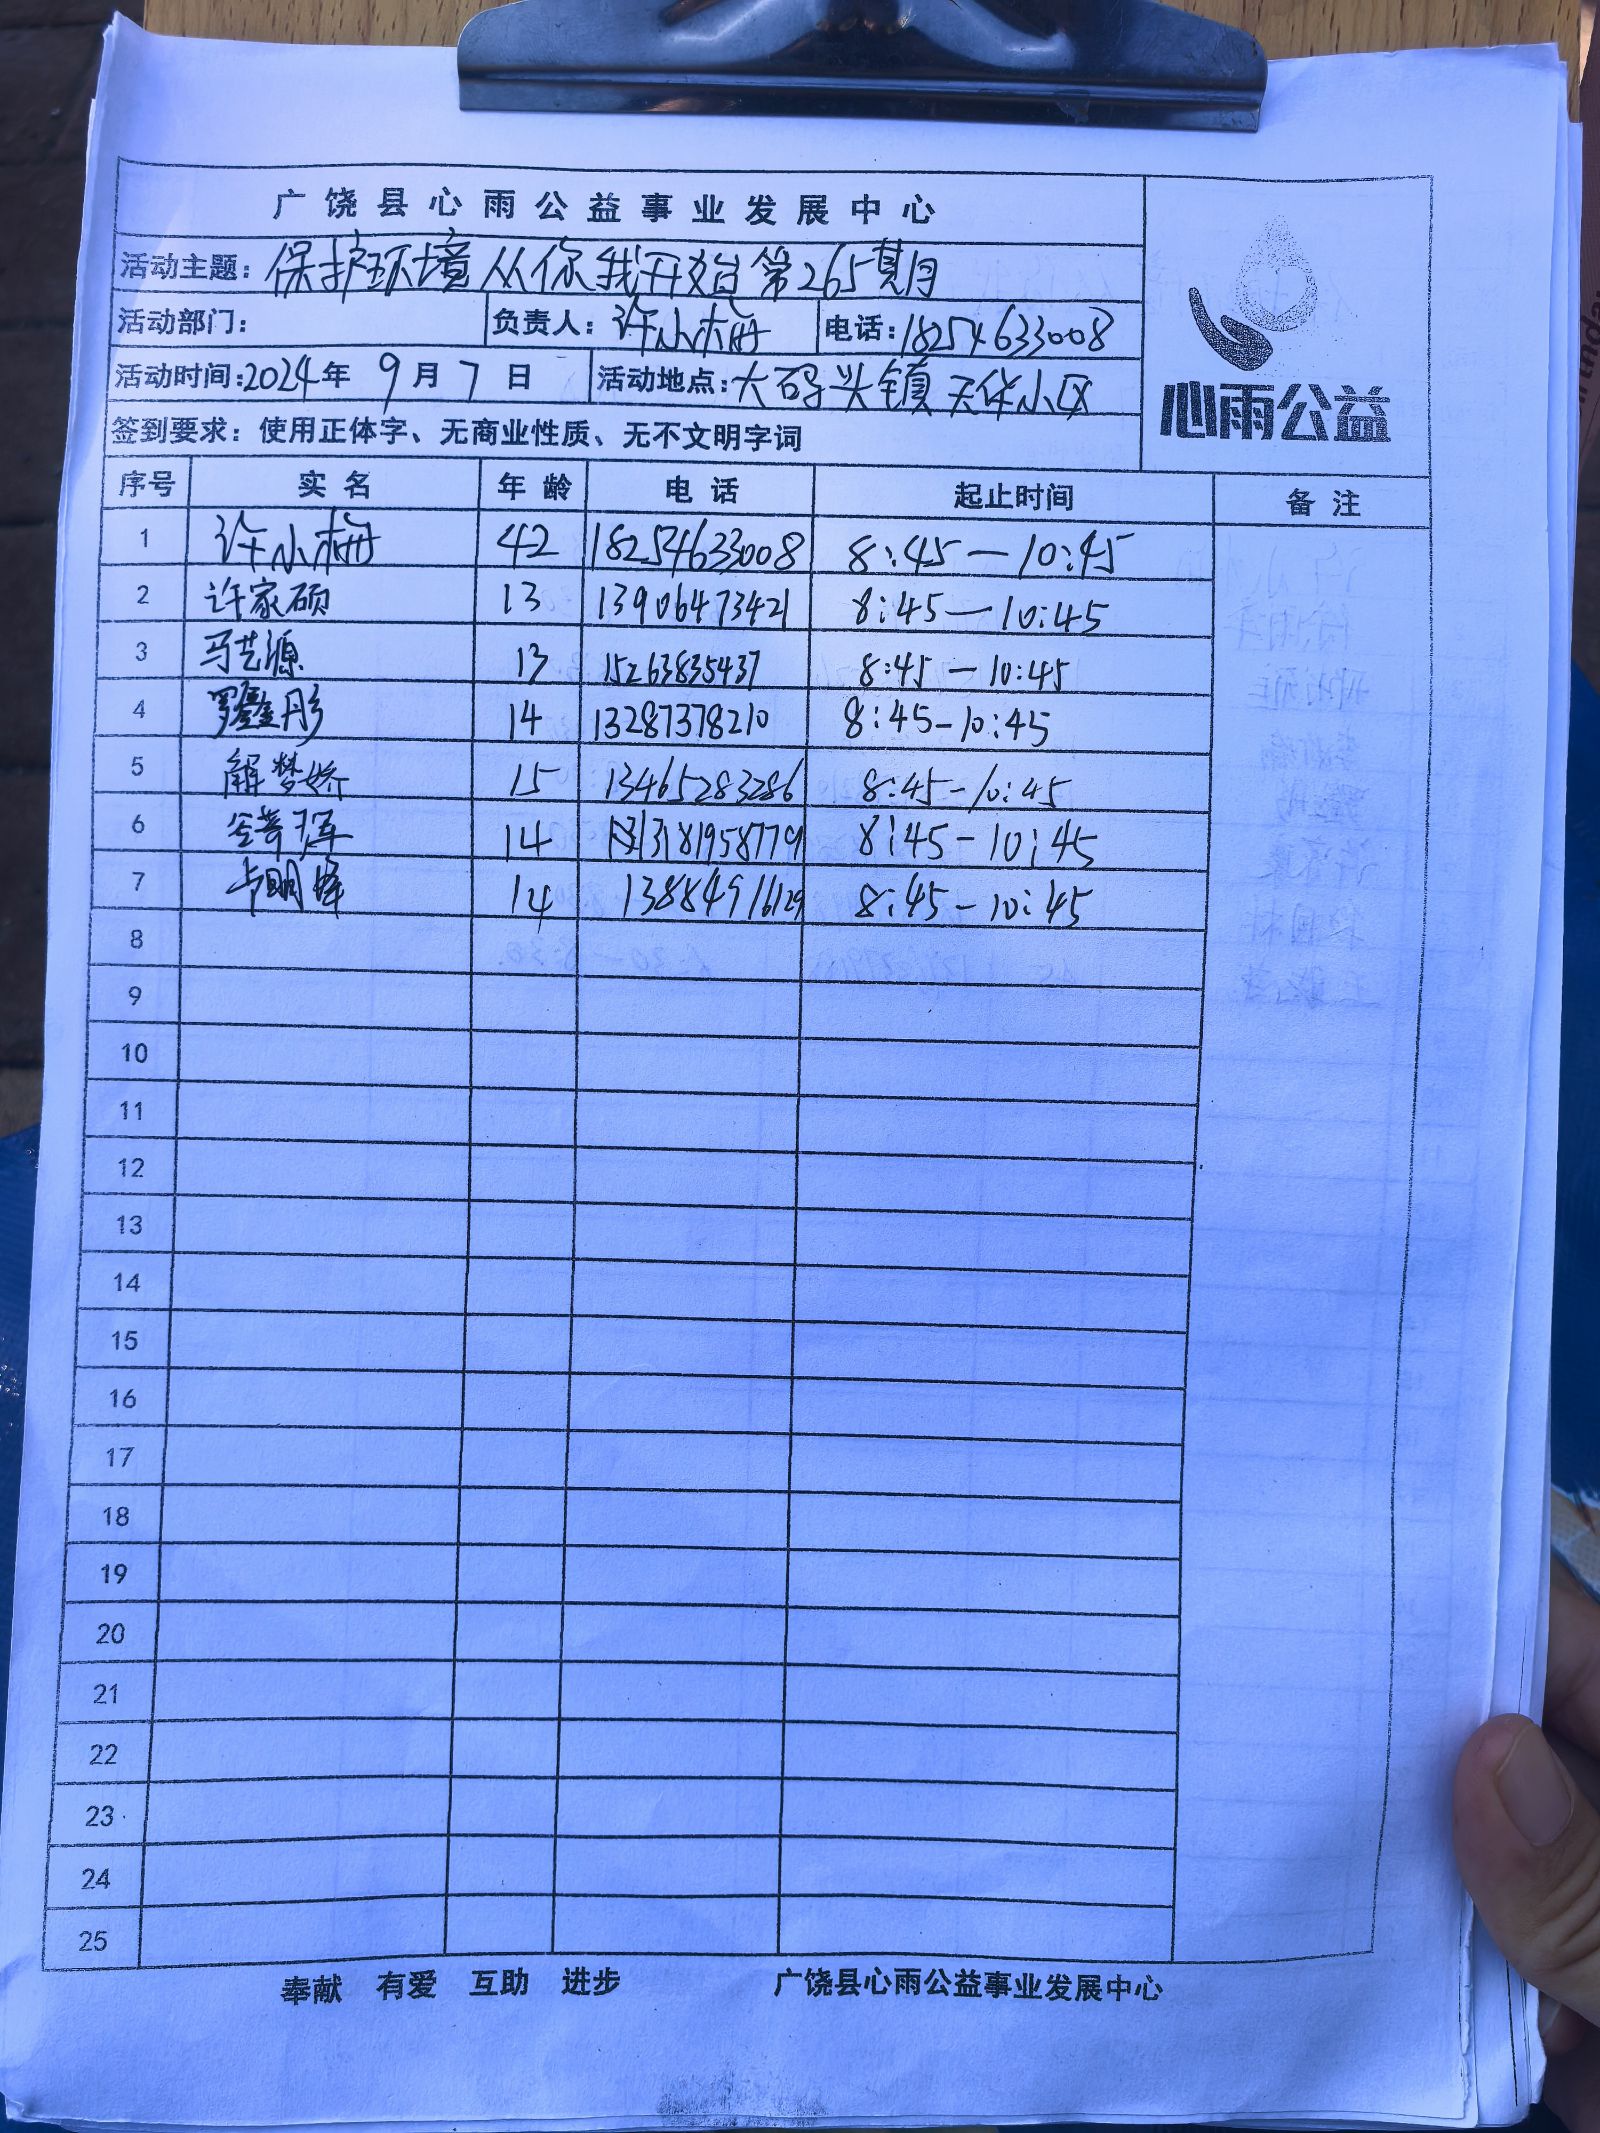 广饶县心雨公益事业发展中心
活动主题：保护环境从你我开始第265期
活动部门： 负责人：许小梅 电话：18254633008
活动时间：2024年9月7日 活动地点：大码头镇天华小区
心雨公益
签到要求：使用正体字、无商业性质、无不文明字词
序号 实名 年龄 电话 起止时间 备注
1 许小梅 42 18254633008 8:45—10:45
2 许家硕 13 13906473421 8:45—10:45
3 马艺源 13 15263835437 8:45—10:45
4 罗鑫彤 14 13287378210 8:45-10:45
5 解梦娇 15 13465283286 8:45-10:45
6 14 13181958779 8:45-10:45
7 14 13884916129 8:45-10:45
8
9
10
11
12
13
14
15
16
17
18
19
20
21
22
23
24
25
奉献 有爱 互助 进步 广饶县心雨公益事业发展中心